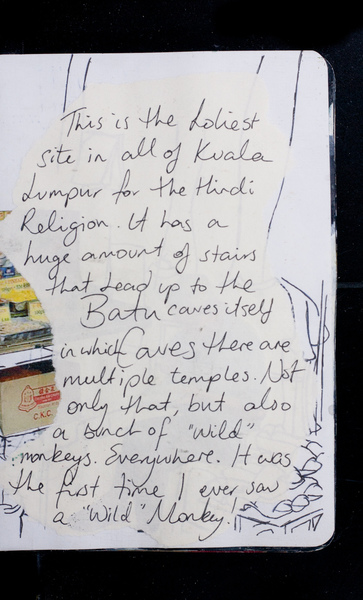 This is the holiest
site in all of Kuala
Lumpur for the Hindi
Religion. It has a
huge amount of stairs
that Lead up to the
Batu caves itself
in which Caves there are
multiple temples. Not
only that, but also
a bunch of "wild"
monkeys. Everywhere. It was
the first time I ever saw
a "Wild" Monkey!
C.K.C.